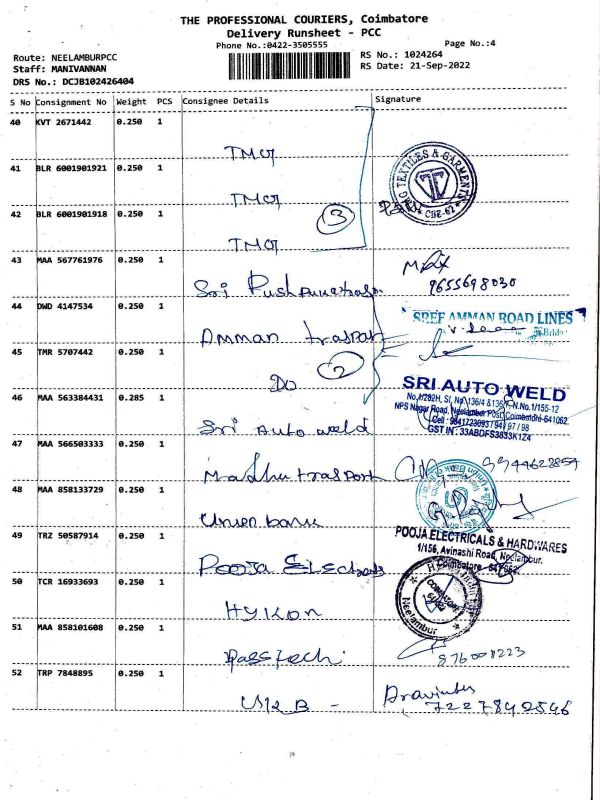 THE PROFESSIONAL COURIERS, Coimbatore
Delivery Runsheet - PCC
Phone No.:0422-3505555
Page No.:4
Route: NEELAMBURPCC
RS No.: 1024264
Staff: MANIVANNAN
RS Date: 21-Sep-2022
DRS No.: DCJB102426404
S No Consignment No Weight PCS Consignee Details Signature
40 KVT 2671442 0.250 1
41 BLR 6001901921 0.250 1
TEXTILES & GARMENTS
CBE-62
42 BLR 6001901918 0.250 1
3
43 MAA 567761976 0.250 1
Sri
9655698030
44 DWD 4147534 0.250 1
Amman
SREE AMMAN ROAD LINES
45 TMR 5707442 0.250 1
Do 2
46 MAA 563384431 0.285 1
Sri Auto weld
SRI AUTO WELD
NPS Nagar Road, Neelambur Post, Coimbatore-641062.
GST IN : 33ABDFS3833K1Z4
47 MAA 566503333 0.250 1
Madhu trasport
48 MAA 858133729 0.250 1
Union bank
49 TRZ 50587914 0.250 1
Pooja
POOJA ELECTRICALS & HARDWARES
1/156, Avinashi Road, Neelambur.
50 TCR 16933693 0.250 1
HYKON
Neelambur
51 MAA 858101608 0.250 1
52 TRP 7848895 0.250 1
7227842546